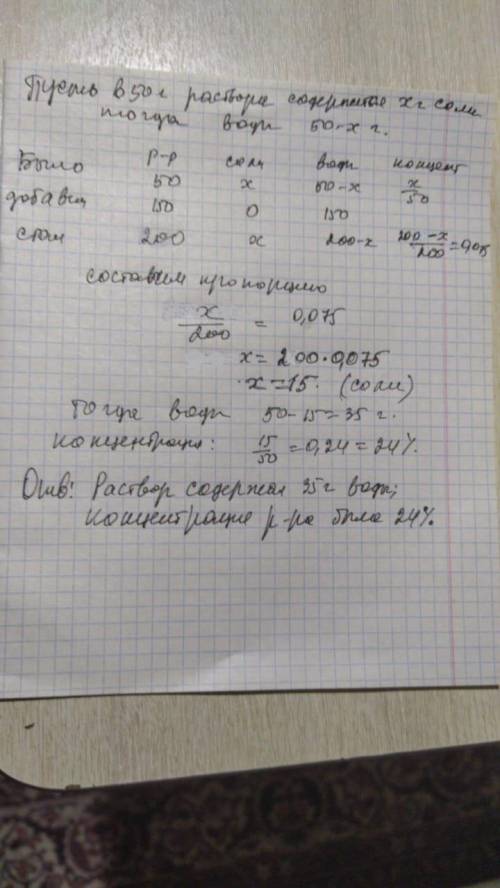 Пусть в 50 г раствора содержится x г соли
тогда воды 50-x г.
Было р-р соли воды концент
50 x 50-x x/50
добавил 150 0 150
стало 200 x 200-x 200-x/200=0,075
составим пропорцию
x/200 = 0,075
x=200·0,075
x=15. (соли)
Тогда воды 50-15=35 г.
Концентрация: 15/50=0,24=24%.
Отв: Раствор содержал 35 г воды;
концентрация р-ра была 24%.